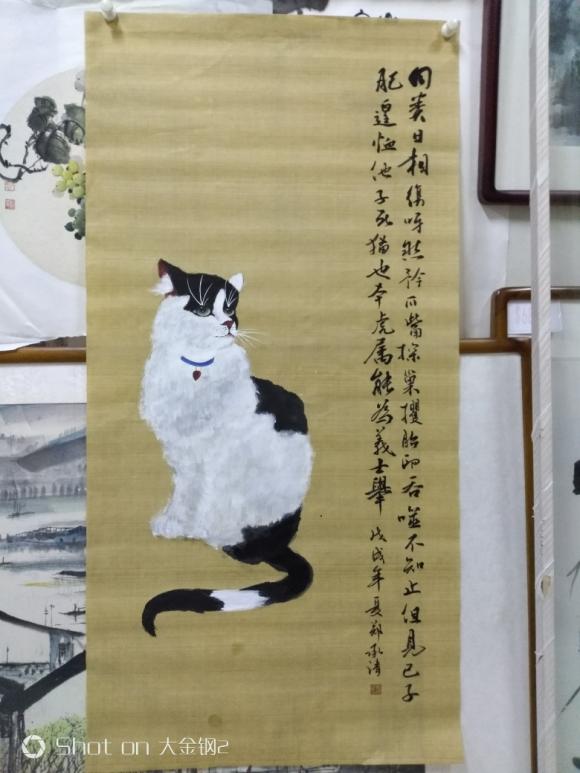 同类日相侵呀然矜爪觜探巢攫胎卵吞噬不知止但见己子
肥遑恤他子死猫也本虎属能为義士舉 戊戌年夏郑承清
Shot on 大金钢2